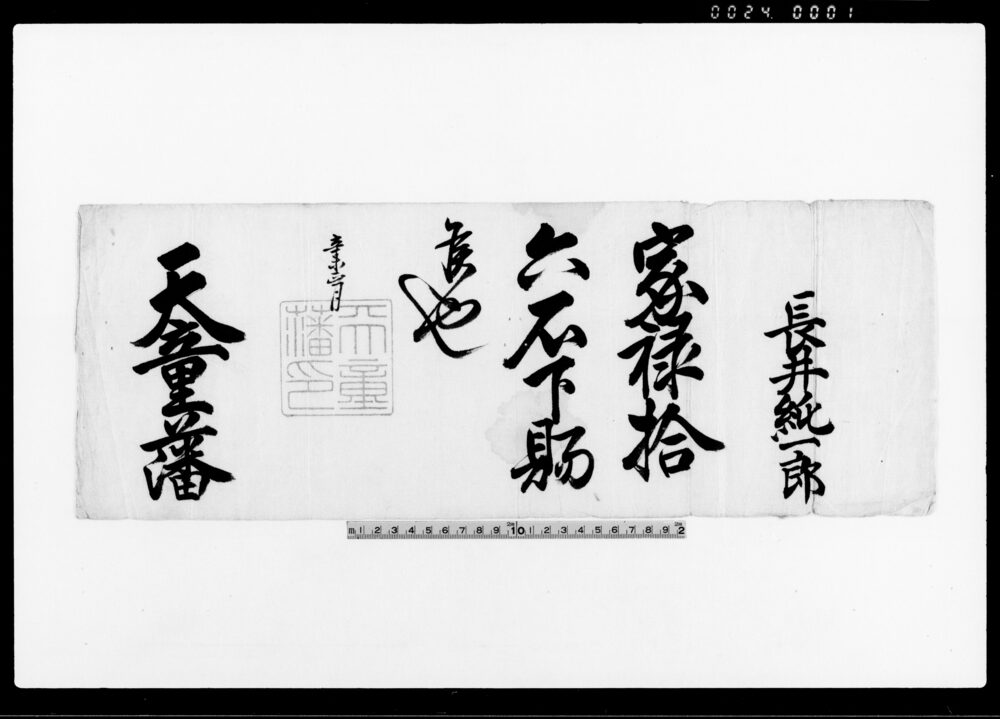 0024. 0001
長井純一郎
家禄拾
六石下賜
候也
辛未三月
天童藩
天童藩印
m 1 2 3 4 5 6 7 8 9 10 1 2 3 4 5 6 7 8 9 2